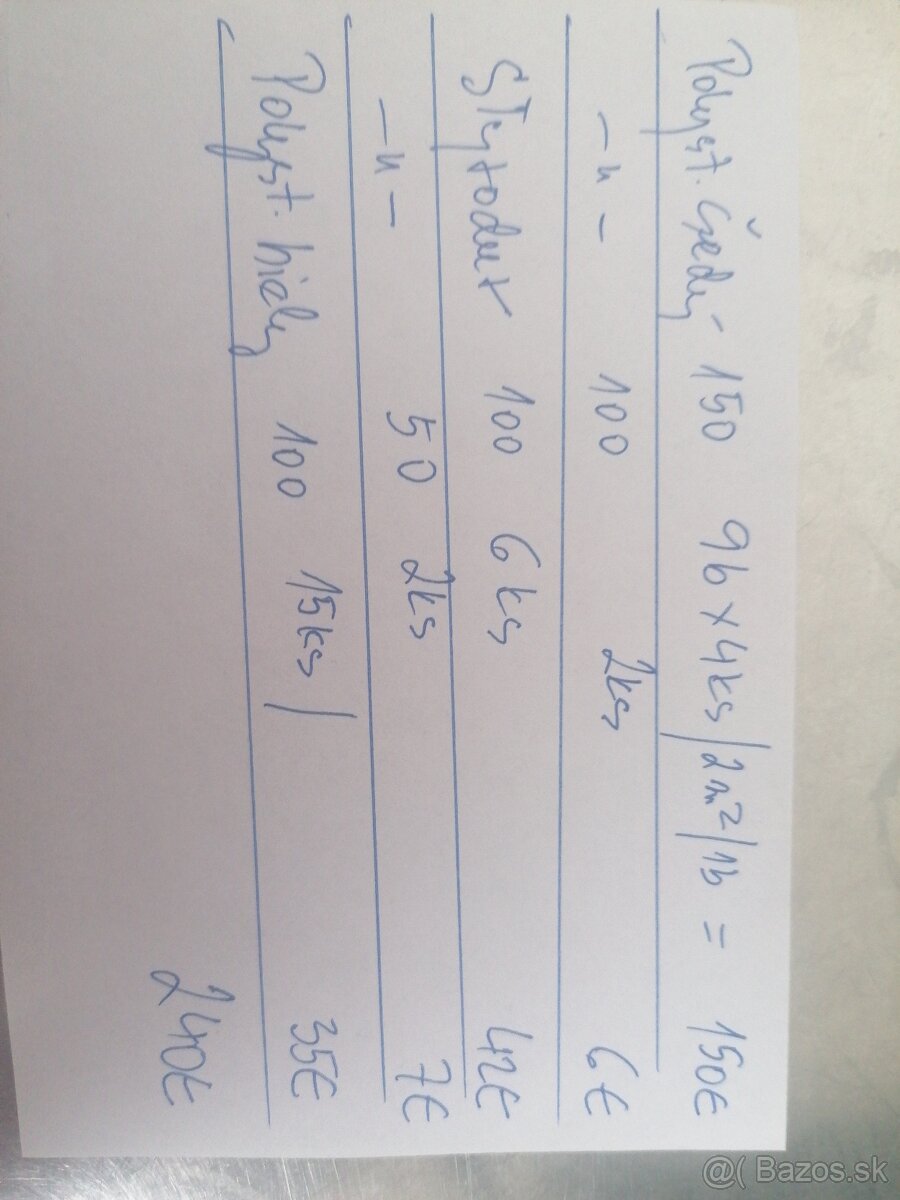 Polyst. Šedý - 150 9b x 4ks / 2m²/1b = 150€
-"- 100 2ks 6€
Styrodur 100 6ks 42€
-"- 50 2ks 7€
Polyst. biely 100 15ks / 35€
240€
@( Bazos.sk